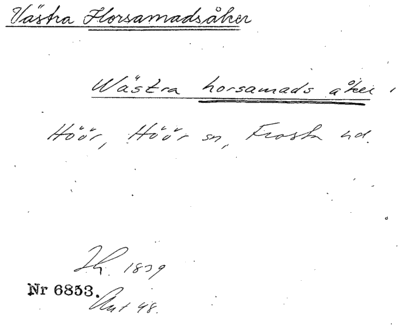 Västra Horsamadsåker
Wästra horsamads åker i
Höör, Höör sn, Frosta hd.
1839
Nr 6853.
Akt 48.